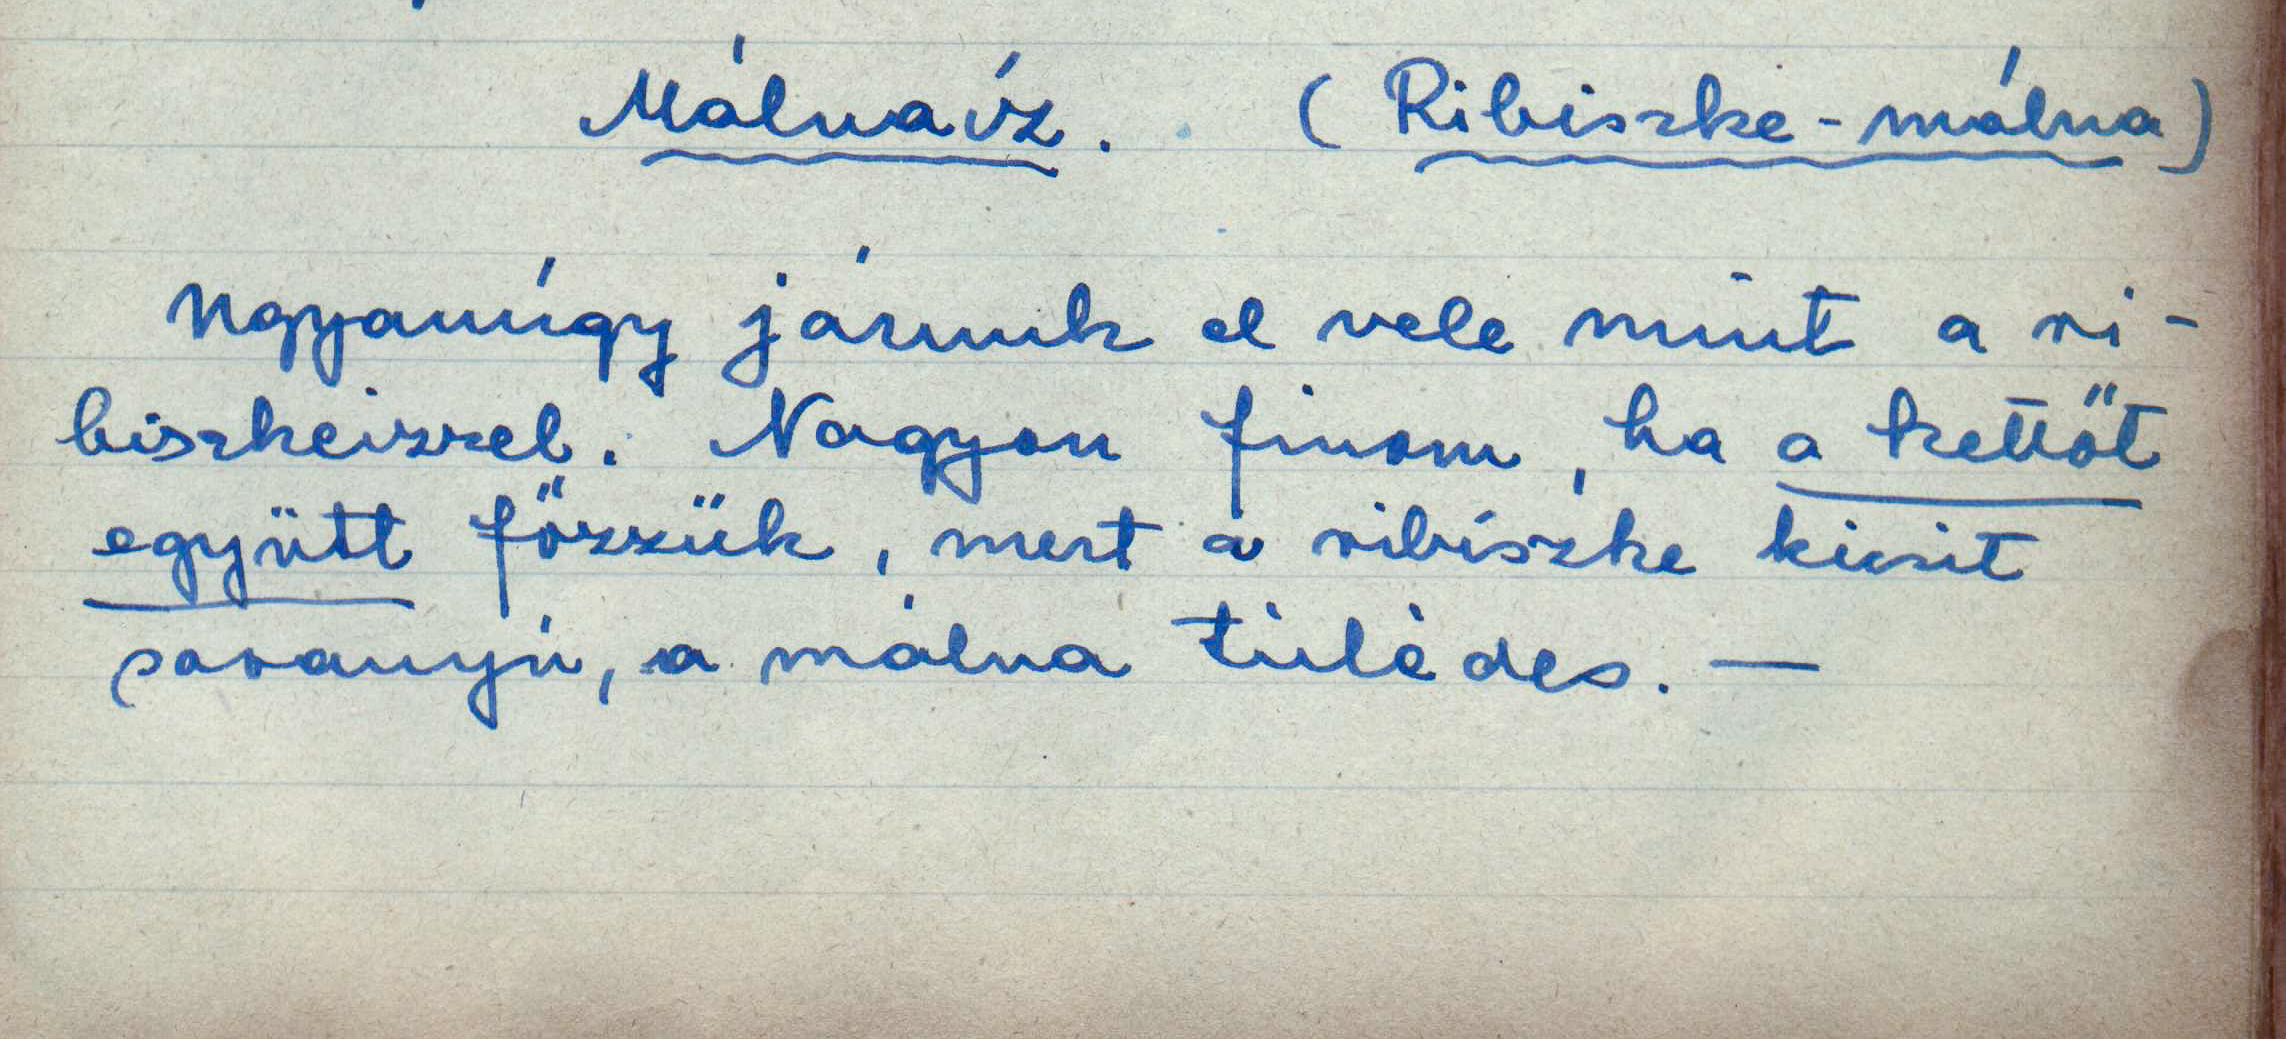 Málnaíz. (Ribiszke-málna)
Ugyanúgy járunk el vele mint a ri-
biszkeizzel. Nagyon finom, ha a kettőt
együtt főzzük, mert a ribiszke kicsit
savanyú, a málna túlédes. —